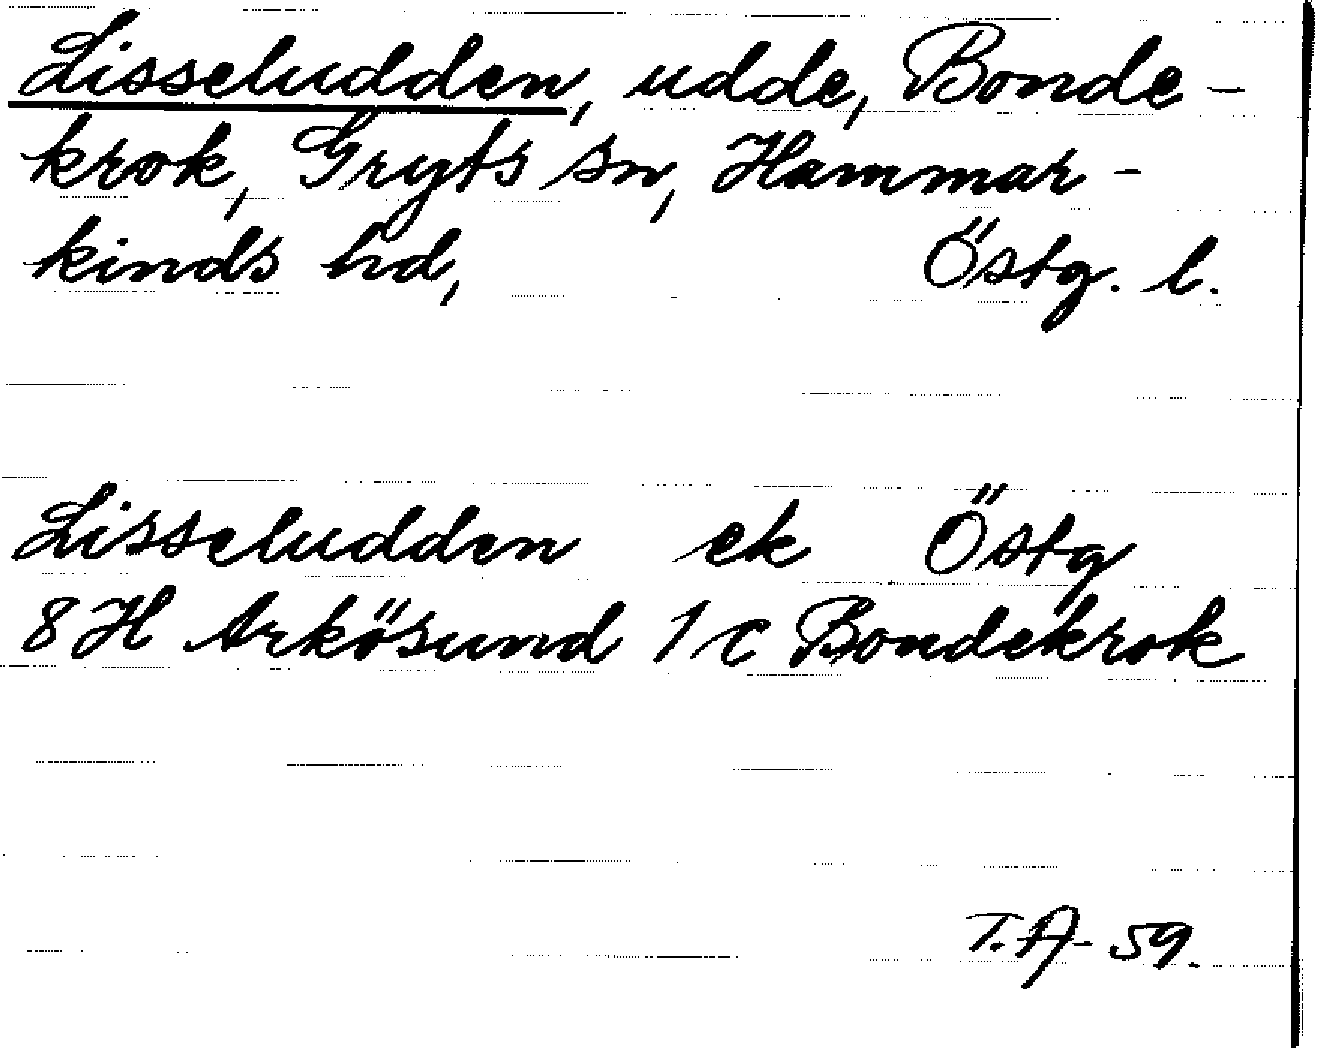 Lisseludden, udde, Bonde-
krok, Gryts sn, Hammar-
kinds hd, Östg. l.
Lisseludden ek Östg
8H Arkösund 1c Bondekrok
T.A-59.